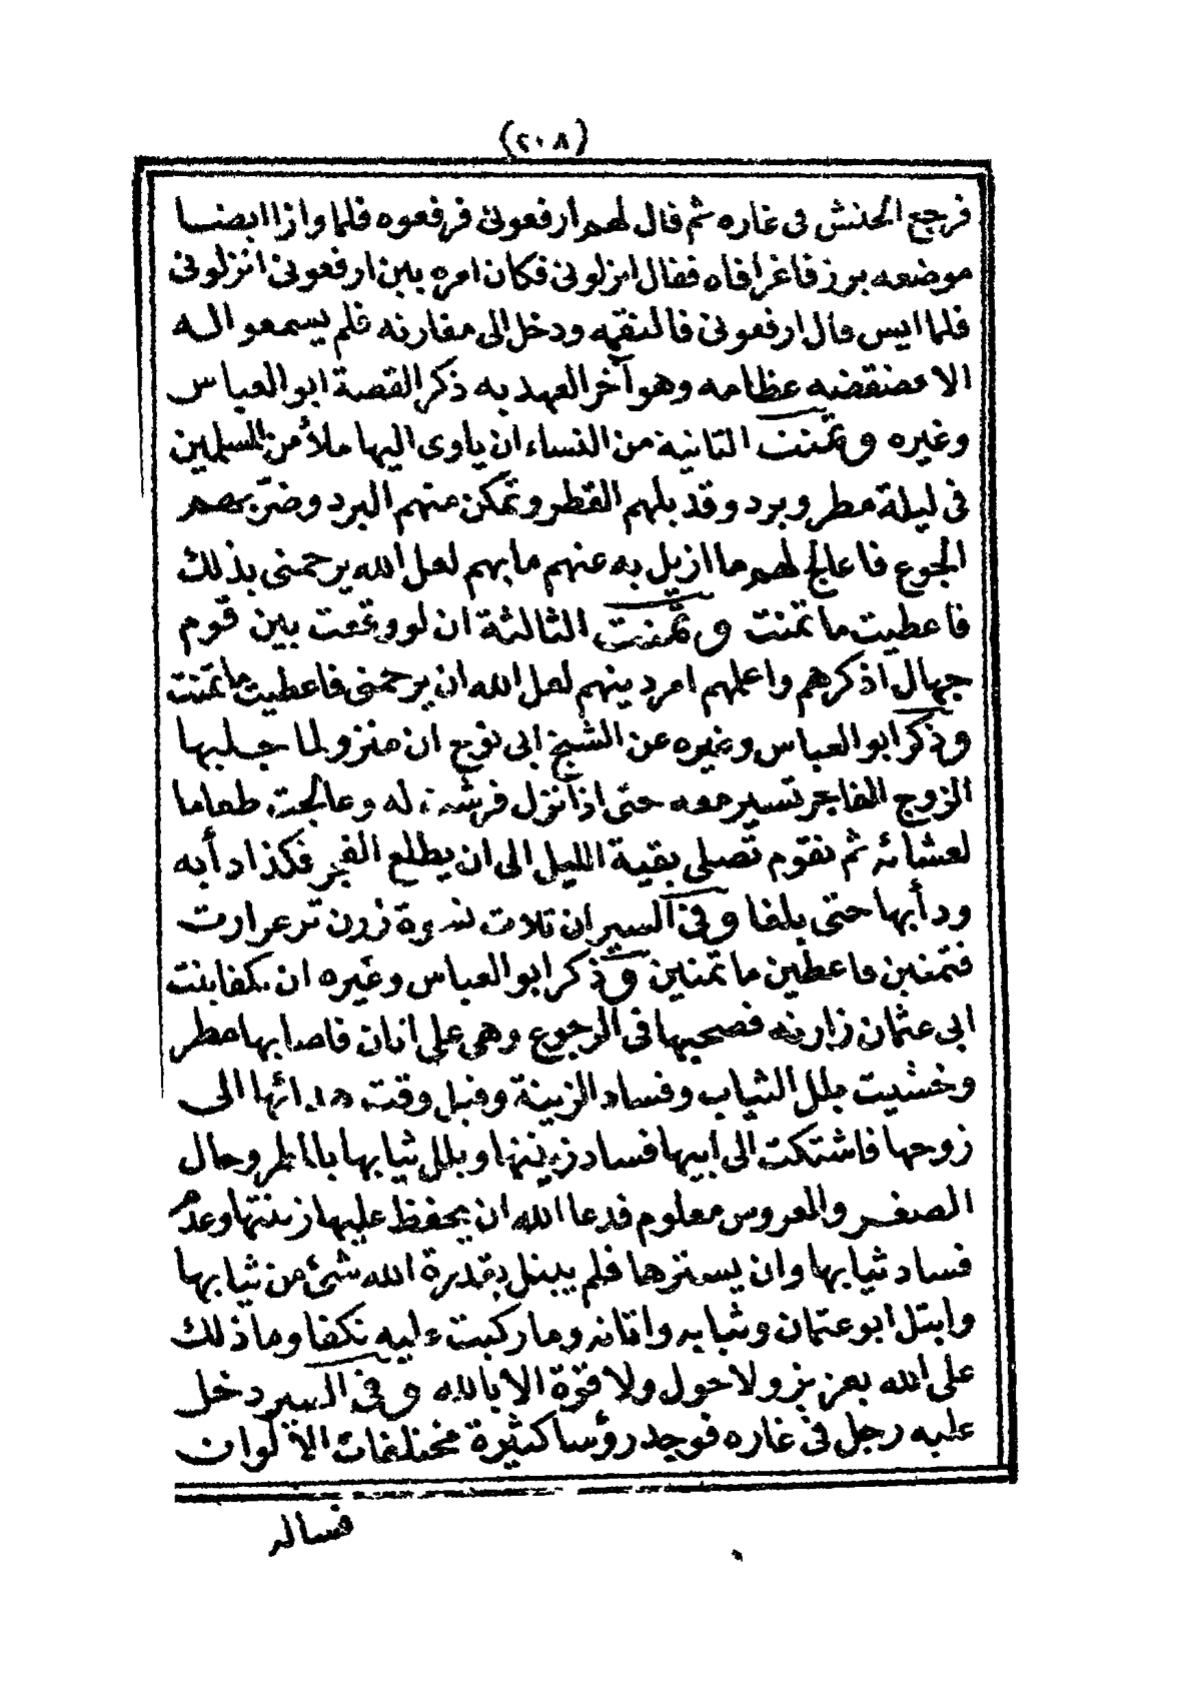 (٢٠٨)
فرجع الحنش فى غاره ثم قال لهم ارفعونى فرفعوه فلما وازا ايضا
موضعه برز فاغرا فاه فقال انزلونى فكان امره بين ارفعونى انزلونى
فلما ايس قال ارفعونى فالتقمه ودخل الى مغارته فلم يسمعوا له
الا قضقضه عظامه وهو آخر العهد به ذكر القصة ابو العباس
وغيره وتمنت الثانية من النساء ان ياوى اليها ملأ من المسلمين
فى ليلة مطر وبرد وقد بلهم القطر وتمكن منهم البرد وضرّ بهم
الجوع فاعالج لهم ما ازيل به عنهم ما بهم لعل الله يرحمنى بذلك
فاعطيت ما تمنت وتمنت الثالثة ان لو وقعت بين قوم
جهال اذكرهم واعلمهم امر دينهم لعل الله ان يرحمنى فاعطيت ما تمنت
وذكر ابو العباس وغيره عن الشيخ ابى نوح ان منزو لما جلبها
الزوج الفاجر تسير معه حتى اذا نزل فرشت له وعالجت طعاما
لعشائه ثم تقوم تصلى بقية الليل الى ان يطلع الفجر فكذا دأبه
ودأبها حتى بلغا وفى السير ان ثلاث نسوة زرن ترعرارت
فتمنين فاعطين ما تمنين وذكر ابو العباس وغيره ان تكفا بنت
ابى عثمان زارته فصحبها فى الرجوع وهى على اتان فاصابها مطر
وخشيت بلل الثياب وفساد الزينة وقبل وقت هدائها الى
زوجها فاشتكت الى ابيها فساد زينتها وبلل ثيابها بالمطر وحال
الصغر والعروس معلوم فدعا الله ان يحفظ عليها زينتها وعدم
فساد ثيابها وان يسترها فلم يبتل بقدرة الله شئ من ثيابها
وابتل ابو عثمان وثيابه واتانه وما ركبت عليه تكفا وما ذلك
على الله بعزيز ولا حول ولا قوة الا بالله وفى السير دخل
عليه رجل فى غاره فوجد رؤسا كثيرة مختلفات الالوان
فساله